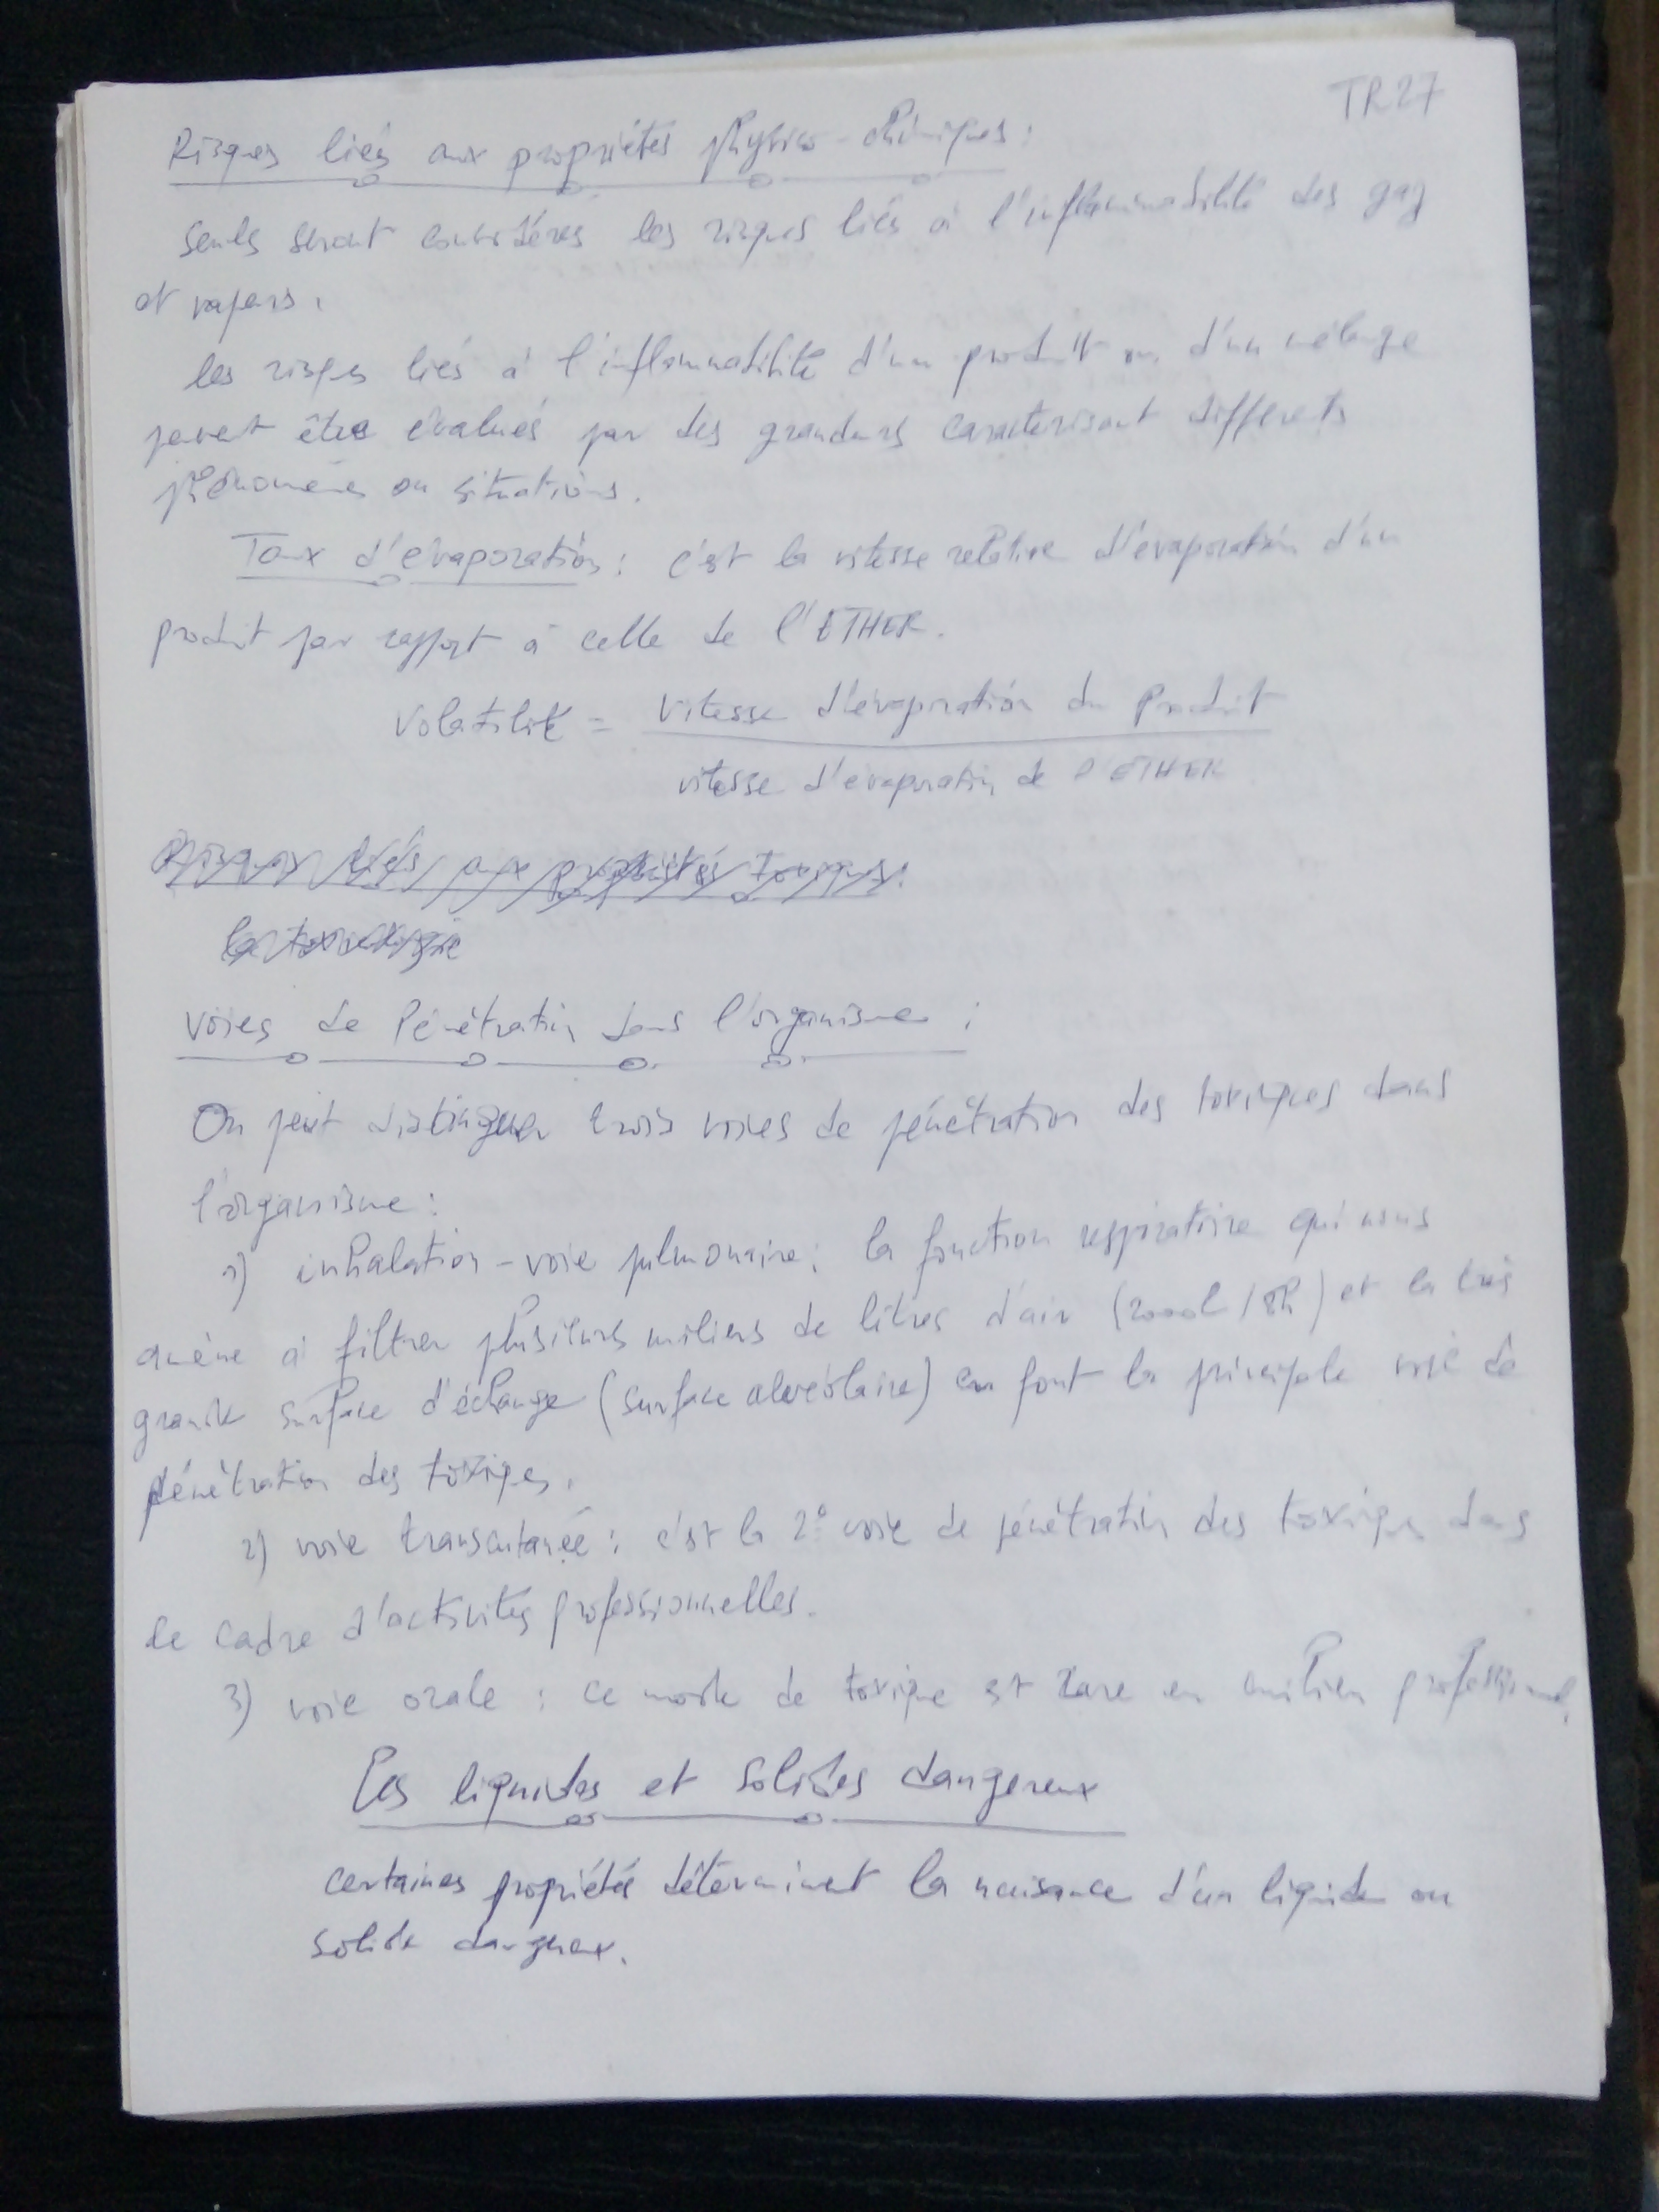 TR27
Risques liés aux propriétés physico-chimiques :
Seuls seront considérés les risques liés à l'inflammabilité des gaz
et vapeurs.
les risques liés à l'inflammabilité d'un produit ou d'un mélange
peuvent être évalués par des grandeurs caractérisant differents
phénomènes ou situations.
Taux d'evaporation : c'est la vitesse relative d'évaporation d'un
produit par rapport à celle de l'ETHER.
Volatilité = Vitesse d'évaporation du Produit
vitesse d'evaporation de l'ETHER
Risques liés aux propriétés toxiques :
la toxicologie
Voies de Pénétration dans l'organisme :
On peut distinguer trois voies de pénétration des toxiques dans
l'organisme :
1) inhalation - voie pulmonaire : la fonction respiratoire qui nous
amène à filtrer plusieurs miliers de litres d'air (2000l/8h) et la très
grande surface d'échange (surface alvéolaire) en font la principale voie de
pénétration des toxiques.
2) voie transcutanée : c'est la 2° voie de pénétration des toxiques dans
le cadre d'activités professionnelles.
3) voie orale : ce mode de toxique est rare en milieu professionnel.
Les liquides et solides dangereux
certaines propriétés déterminent la nuisance d'un liquide ou
solide dangereux.